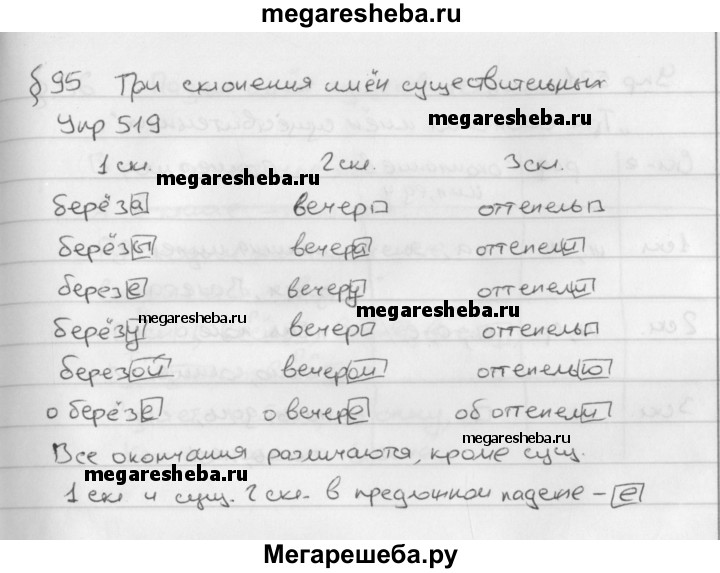 megaresheba.ru
§ 95 Три склонения имён существительных
Упр 519
megaresheba.ru
1 скл. 2 скл. 3 скл.
megaresheba.ru
берёза вечер оттепель
берёзы вечера оттепели
березе вечеру оттепели
megaresheba.ru
megaresheba.ru
берёзу вечер оттепель
березой вечером оттепелью
о берёзе о вечере об оттепели
megaresheba.ru
Все окончания различаются, кроме сущ.
megaresheba.ru
1 скл и сущ. 2 скл. в предложном падеже – е
megaresheba.ru
Мегарешеба.ру